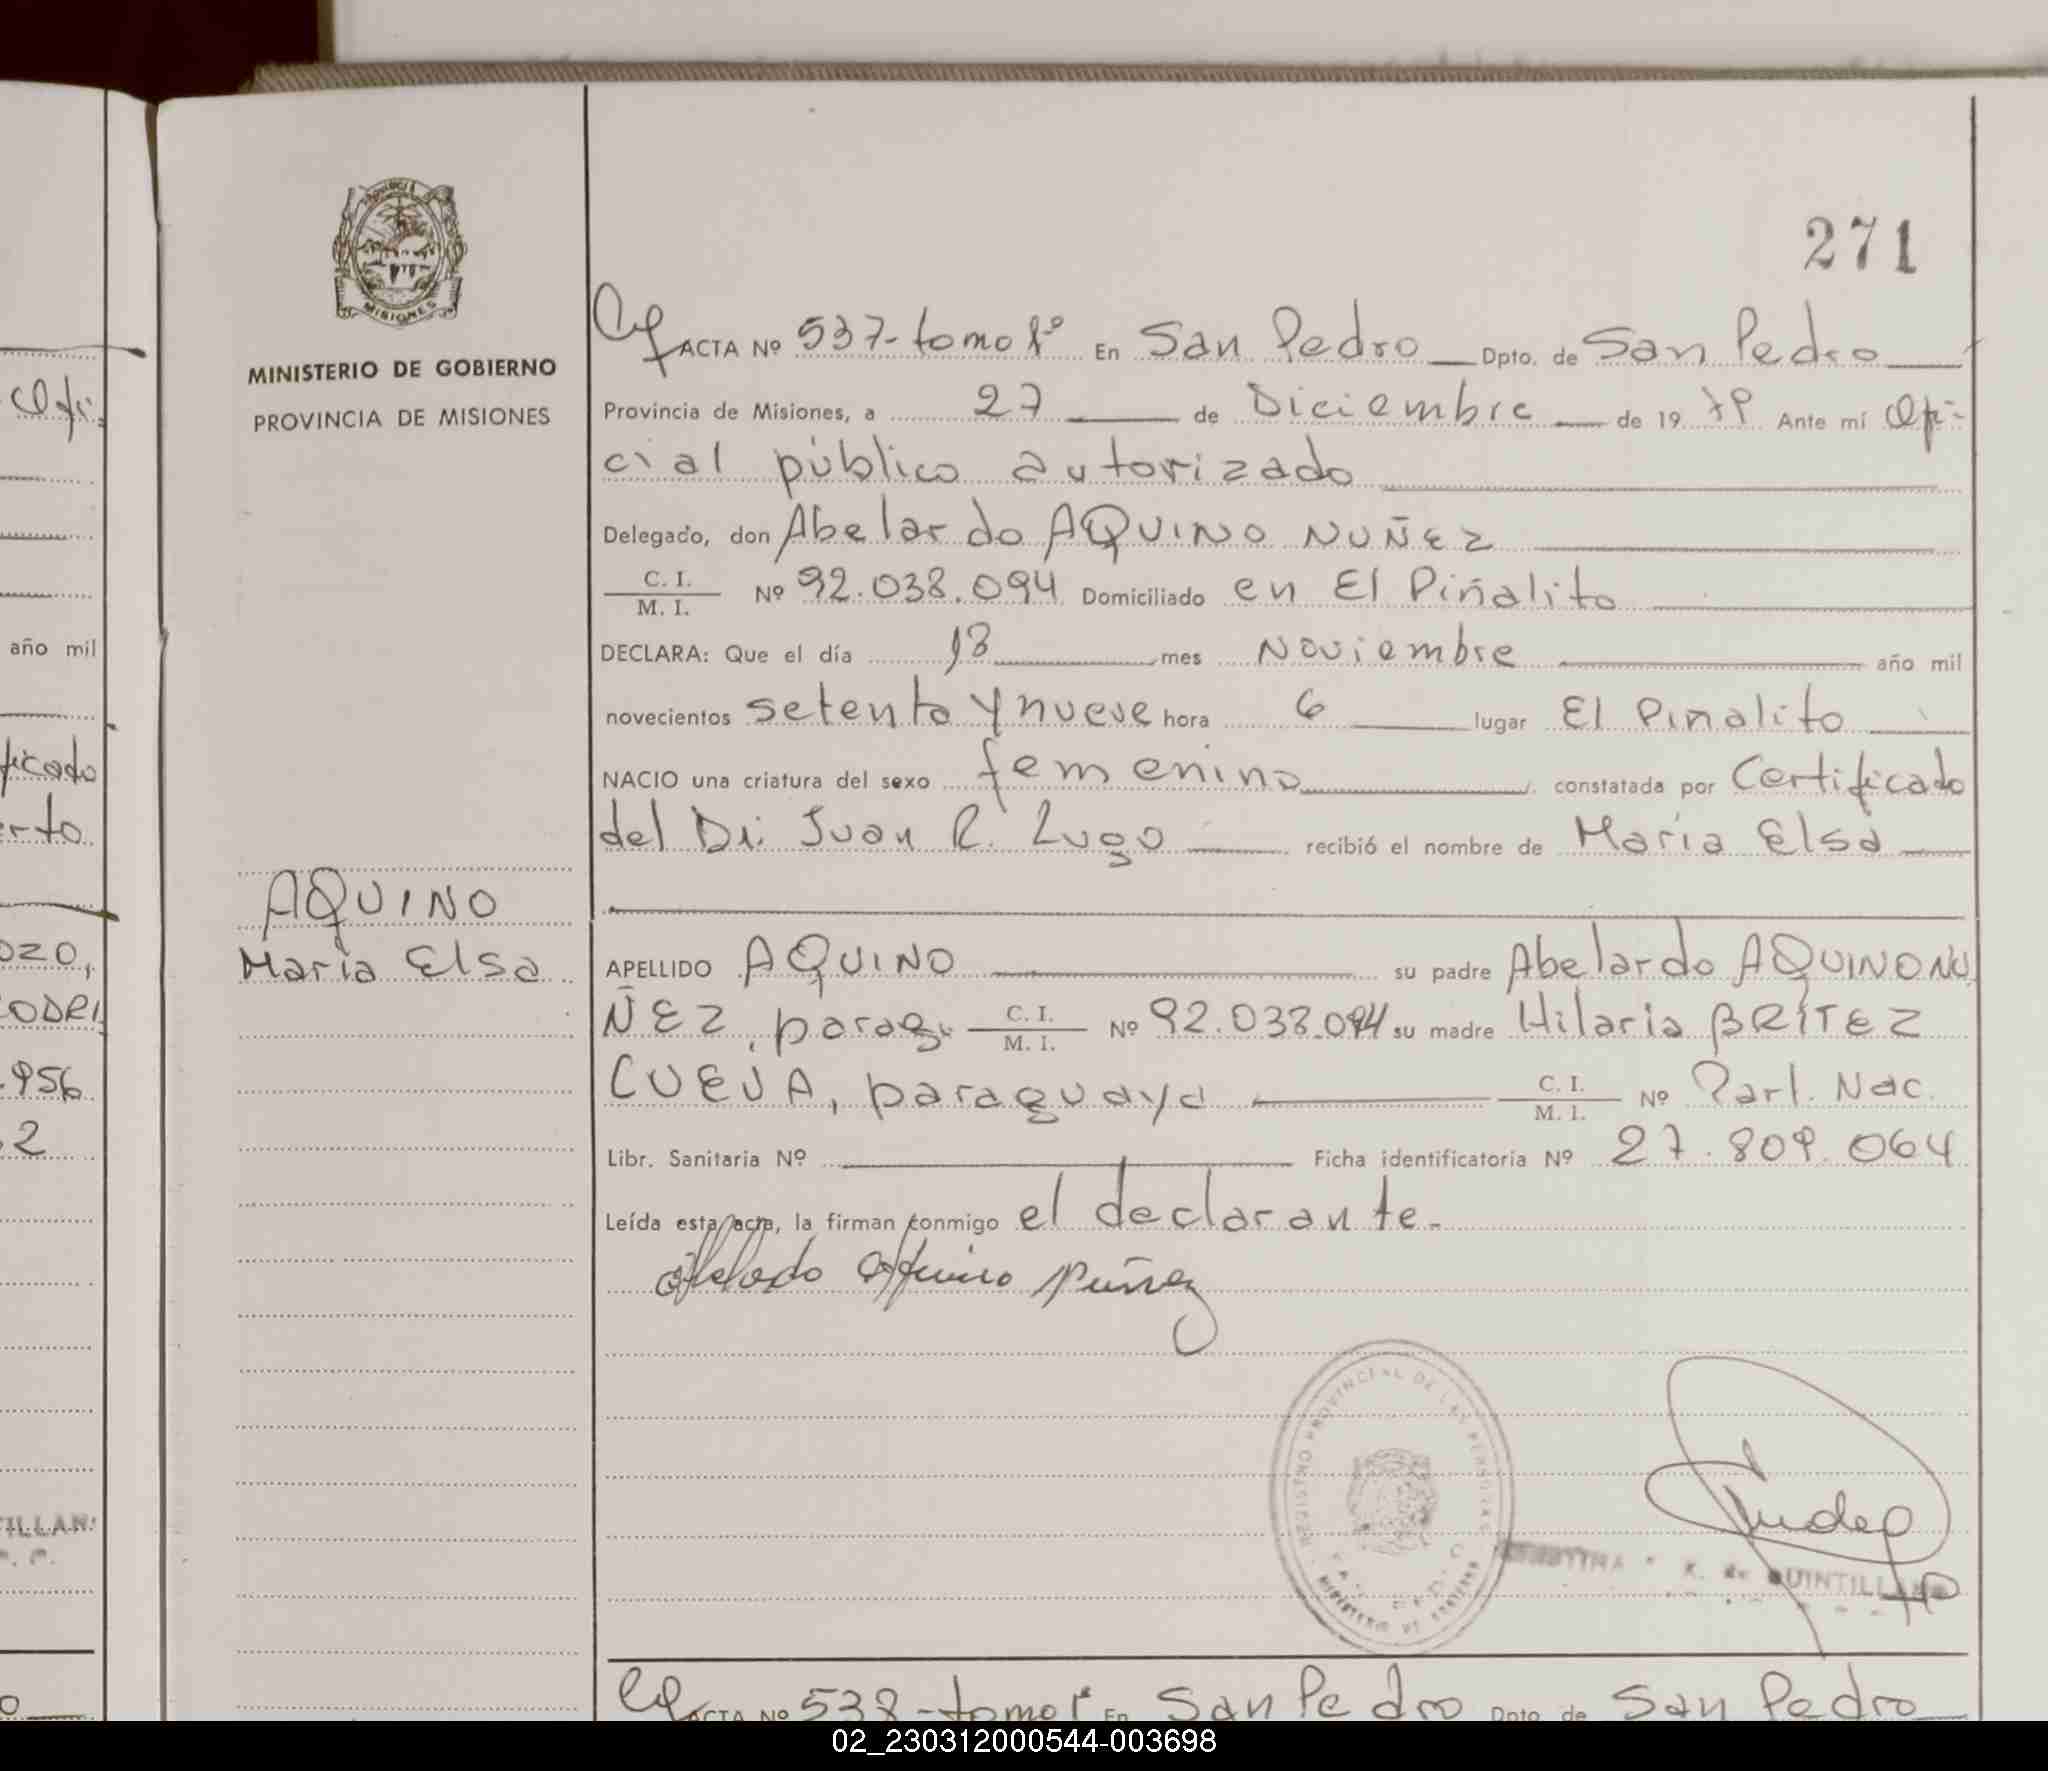 271
MINISTERIO DE GOBIERNO
PROVINCIA DE MISIONES
AQUINO
María Elsa
ACTA Nº 537-tomo 1º En San Pedro Dpto. de San Pedro
Provincia de Misiones, a 27 de Diciembre de 19 79 Ante mí Ofi-
cial público autorizado
Delegado, don Abelardo AQUINO NUÑEZ
C. I.
M. I. Nº 92.038.094 Domiciliado en El Piñalito
DECLARA: Que el día 18 mes Noviembre año mil
novecientos setenta y nueve hora 6 lugar El Piñalito
NACIO una criatura del sexo femenino constatada por Certificado
del Dr. Juan R. Lugo recibió el nombre de María Elsa
APELLIDO AQUINO su padre Abelardo AQUINO NU
ÑEZ, parag. C. I.
M. I. Nº 92.038.094 su madre Hilaria BRÍTEZ
CUEVA, paraguaya C. I.
M. I. Nº Part. Nac.
Libr. Sanitaria Nº Ficha identificatoria Nº 27.809.064
Leída esta acta, la firman conmigo el declarante.-
Abelardo Aquino Núñez
REGISTRO PROVINCIAL DE LAS PERSONAS
MINISTERIO DE GOBIERNO
ACTA Nº 538-tomo 1º En San Pedro Dpto. de San Pedro
año mil
02_230312000544-003698